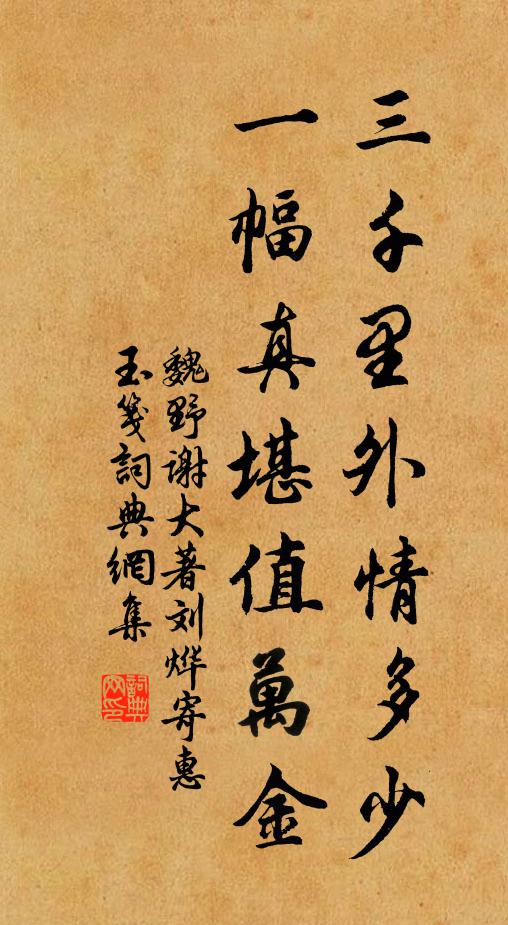 三千里外情多少
一幅真堪值萬金
魏野谢大著刘烨寄惠
玉箋詞典網集
詞典網印